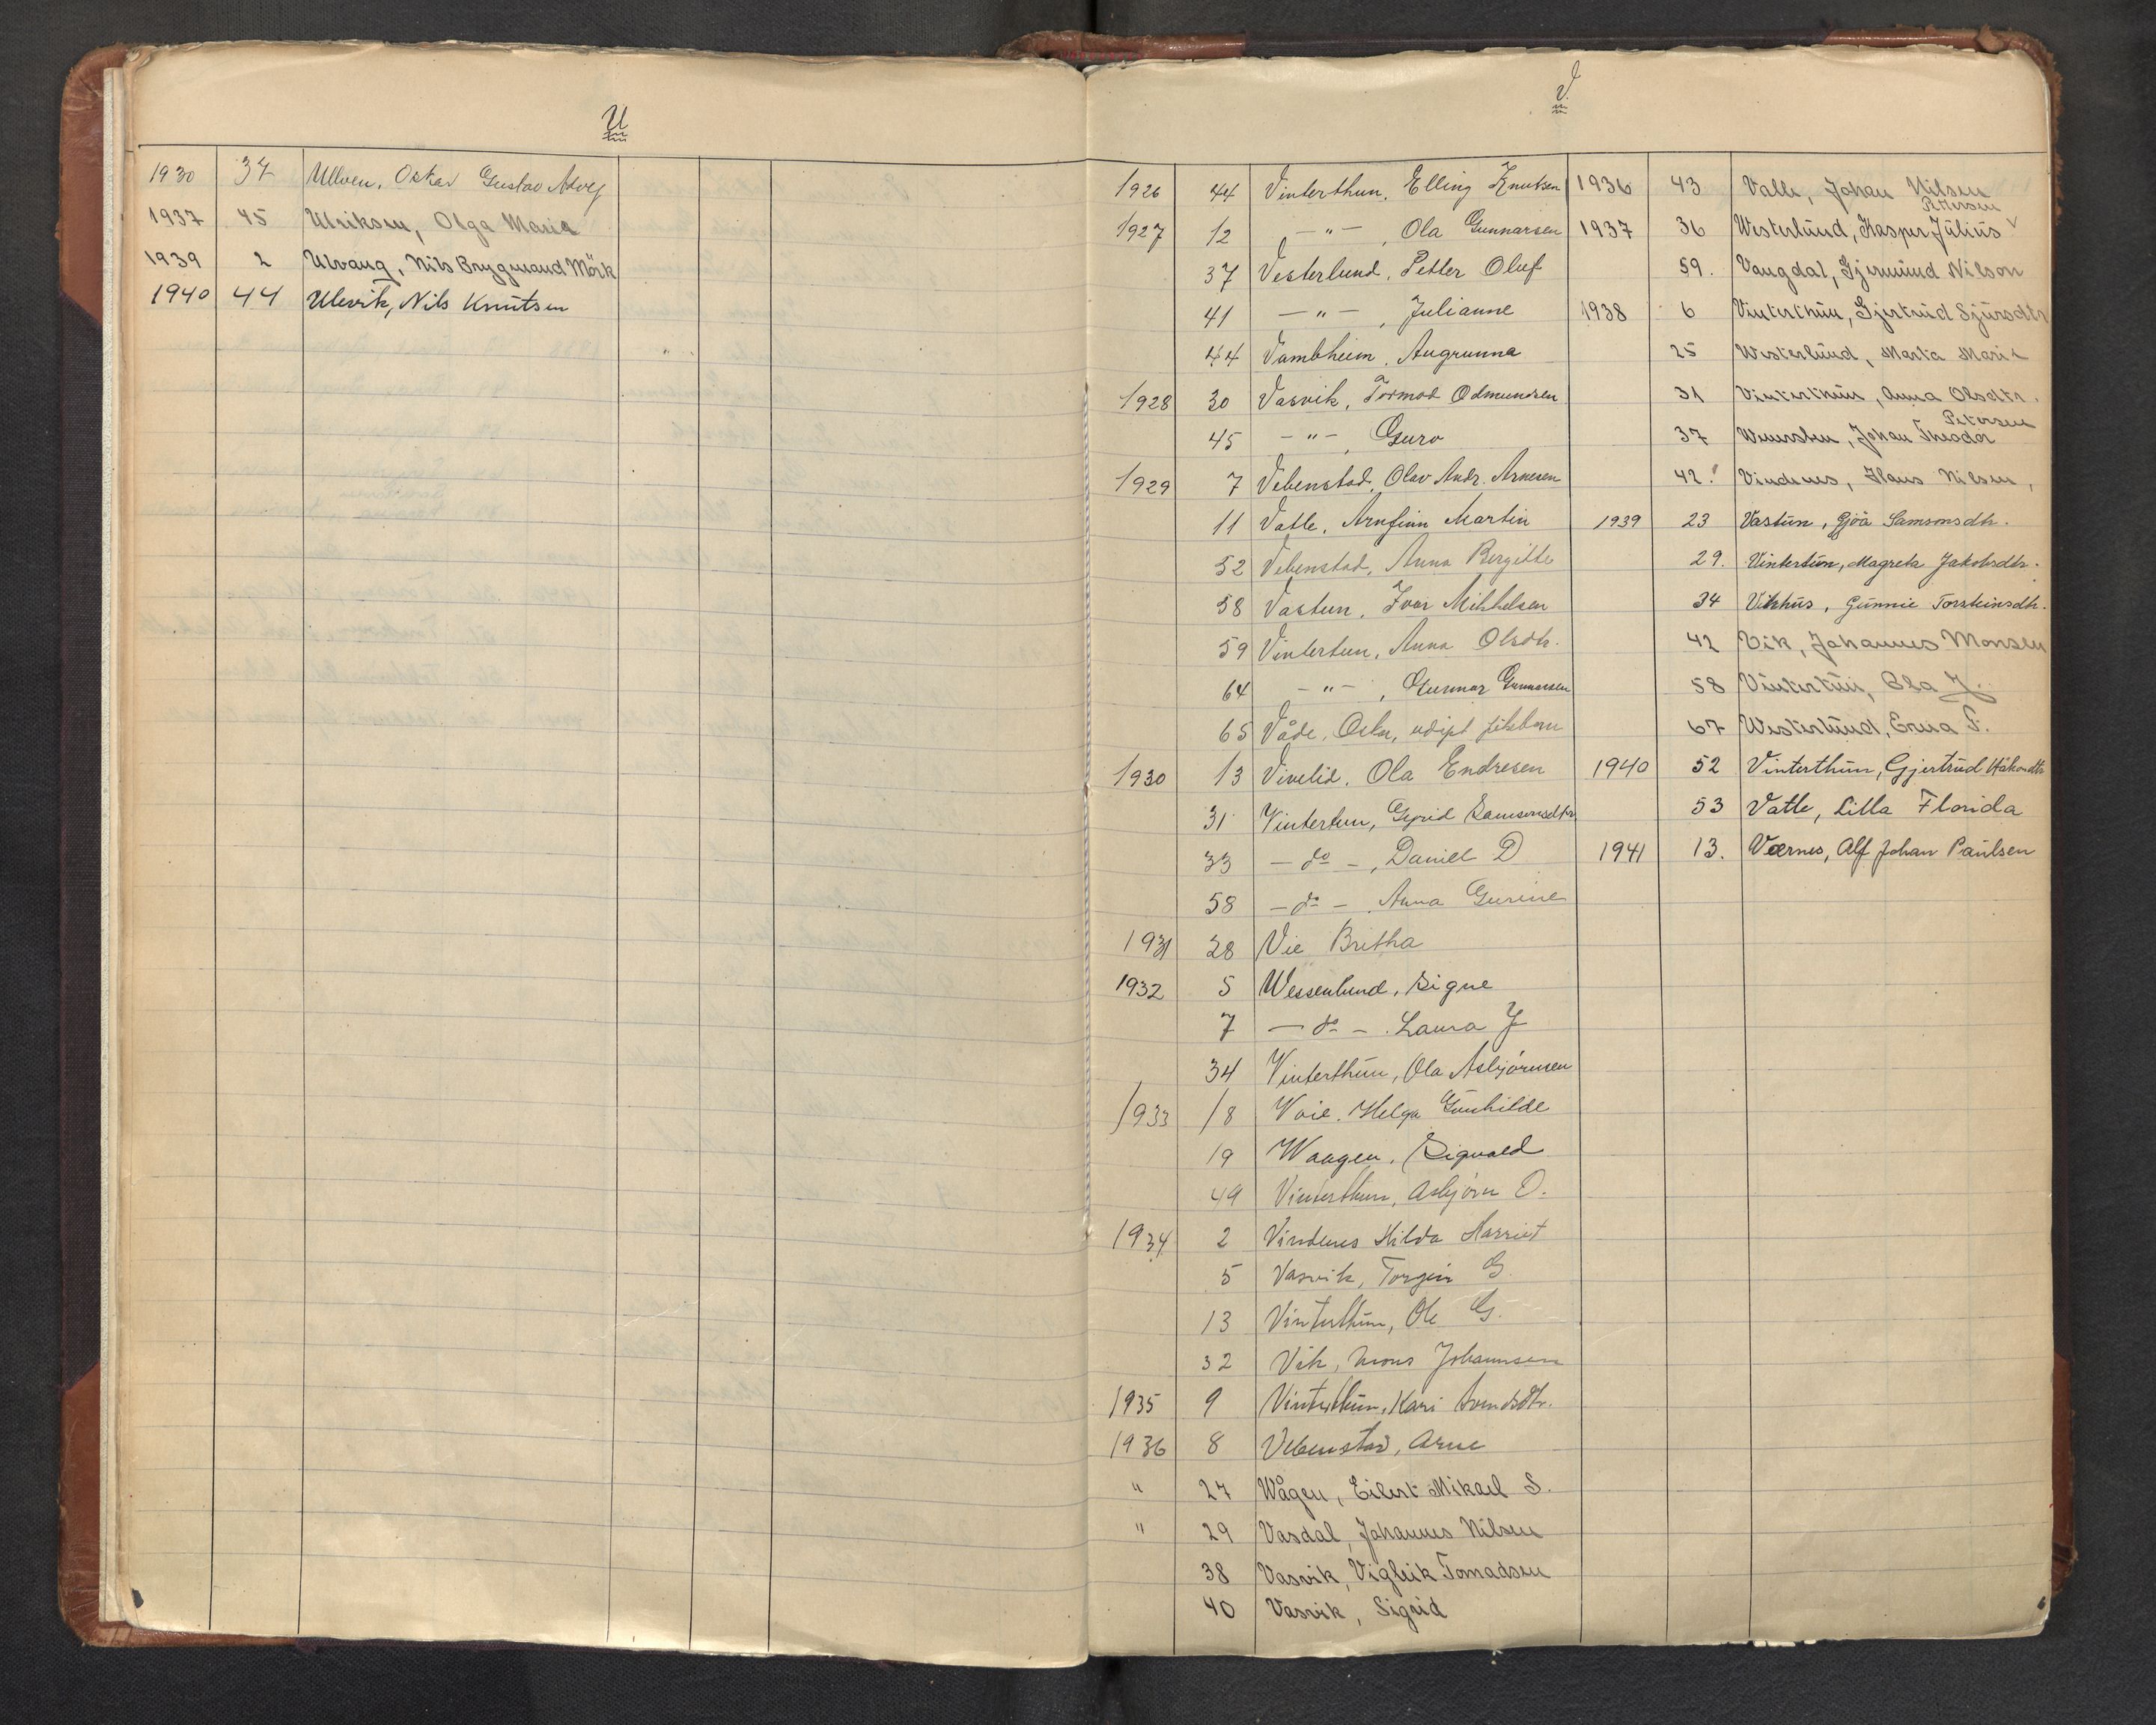 U
1930 37 Ullven, Oskar Gustav Adolf
1937 45 Ulriksen, Olga Maria
1939 2 Ulvang, Nils Brygmand Mörk
1940 44 Ulevik, Nils Knutsen
V.
1926 44 Vinterthun, Elling Knutsen
1927 12 —"— , Ola Gunnarsen
37 Vesterlund, Petter Oluf
41 —"— , Julianne
44 Vambheim, Augrunna
1928 30 Vasvik, Tormod Odmundsen
45 —"— , Guro
1929 7 Vebenstad, Olav Andr. Arnesen
11 Vatle, Arnfinn Martin
52 Vebenstad, Anna Bergitte
58 Vastun, Ivar Mikkelsen
59 Vintertun, Anna Olsdtr.
64 —"— , Gunnar Gunnarsen
65 Våde, Oskar,
1930 13 Vivelid, Ola Endresen
31 Vintertun, Gyrid Samsonsdtr
33 — do — , Daniel D
58 — do — Anna Gurine
1931 28 Vie Britha
1932 5 Wessenlund, Signe
7 — do — . Laura J
34 Vinterthun, Ola Asbjörnsen
1933 18 Voie. Helga Gunhilde
19 Waagen, Sigvald
49 Vinterthun, Asbjørn O.
1934 2 Vindenes Hilda Harriet
5 Vasvik, Torgeir G
13 Vinterthun, Ole G.
32 Vik, Mons Johannsen
1935 9 Vinterthun, Kari Svendsdtr.
1936 8 Vebenstad, Arne
" 27 Wågen, Eilert Mikael S.
" 29 Vasdal, Johannes Nilsen
38 Vasvik, Vigleik Tomadsen
40 Vasvik, Sigrid
1936 43 Valle, Johan Nilsen
Petersen
1937 36 Westerlund, Kasper Julius
59. Vangdal, Gjermund Nilson
1938 6 Vinterthun, Gjertrud Sjursdtr
25 Westerlund, Marta Marie
31 Vinterthun, Anna Olsdtr.
Petersen
37 Wennsten, Johan Theodor
42. Vindenes, Hans Nilsen,
1939 23 Vastun, Gjöa Samsonsdtr.
29. Vintertun, Magreta Jakobsdtr.
34 Vikhus, Gunnie Torsteinsdtr.
42 Vik, Johannes Monsen
58 Vintertun, Ola J.
67 Westerlund, Erna F.
1940 52 Vinterthun, Gjertrud Håkondtr
53 Vatle, Lilla Florida
1941 13. Værnes, Alf Johan Paulsen